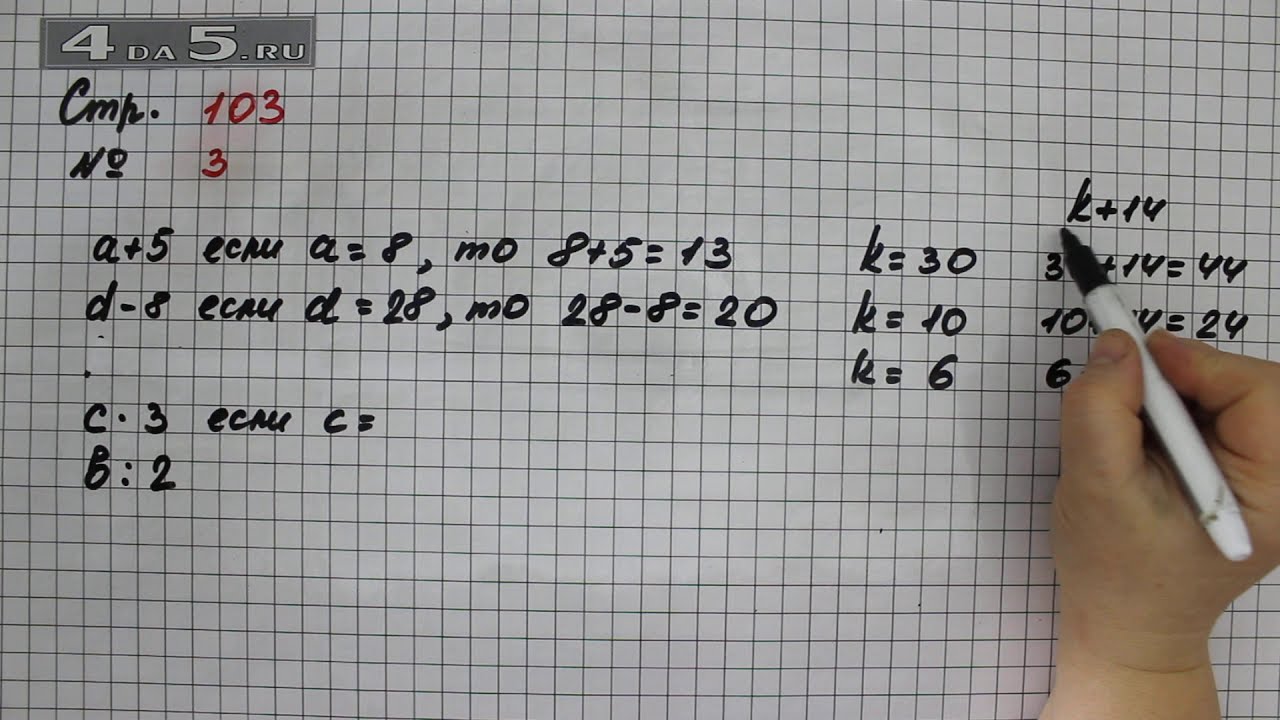 4DA5.RU
Стр. 103
№ 3
a+5 если a = 8, то 8+5 = 13
d-8 если d = 28, то 28-8 = 20
c · 3 если c =
в : 2
k+14
k = 30 3 +14 = 44
k = 10 10 4 = 24
k = 6 6